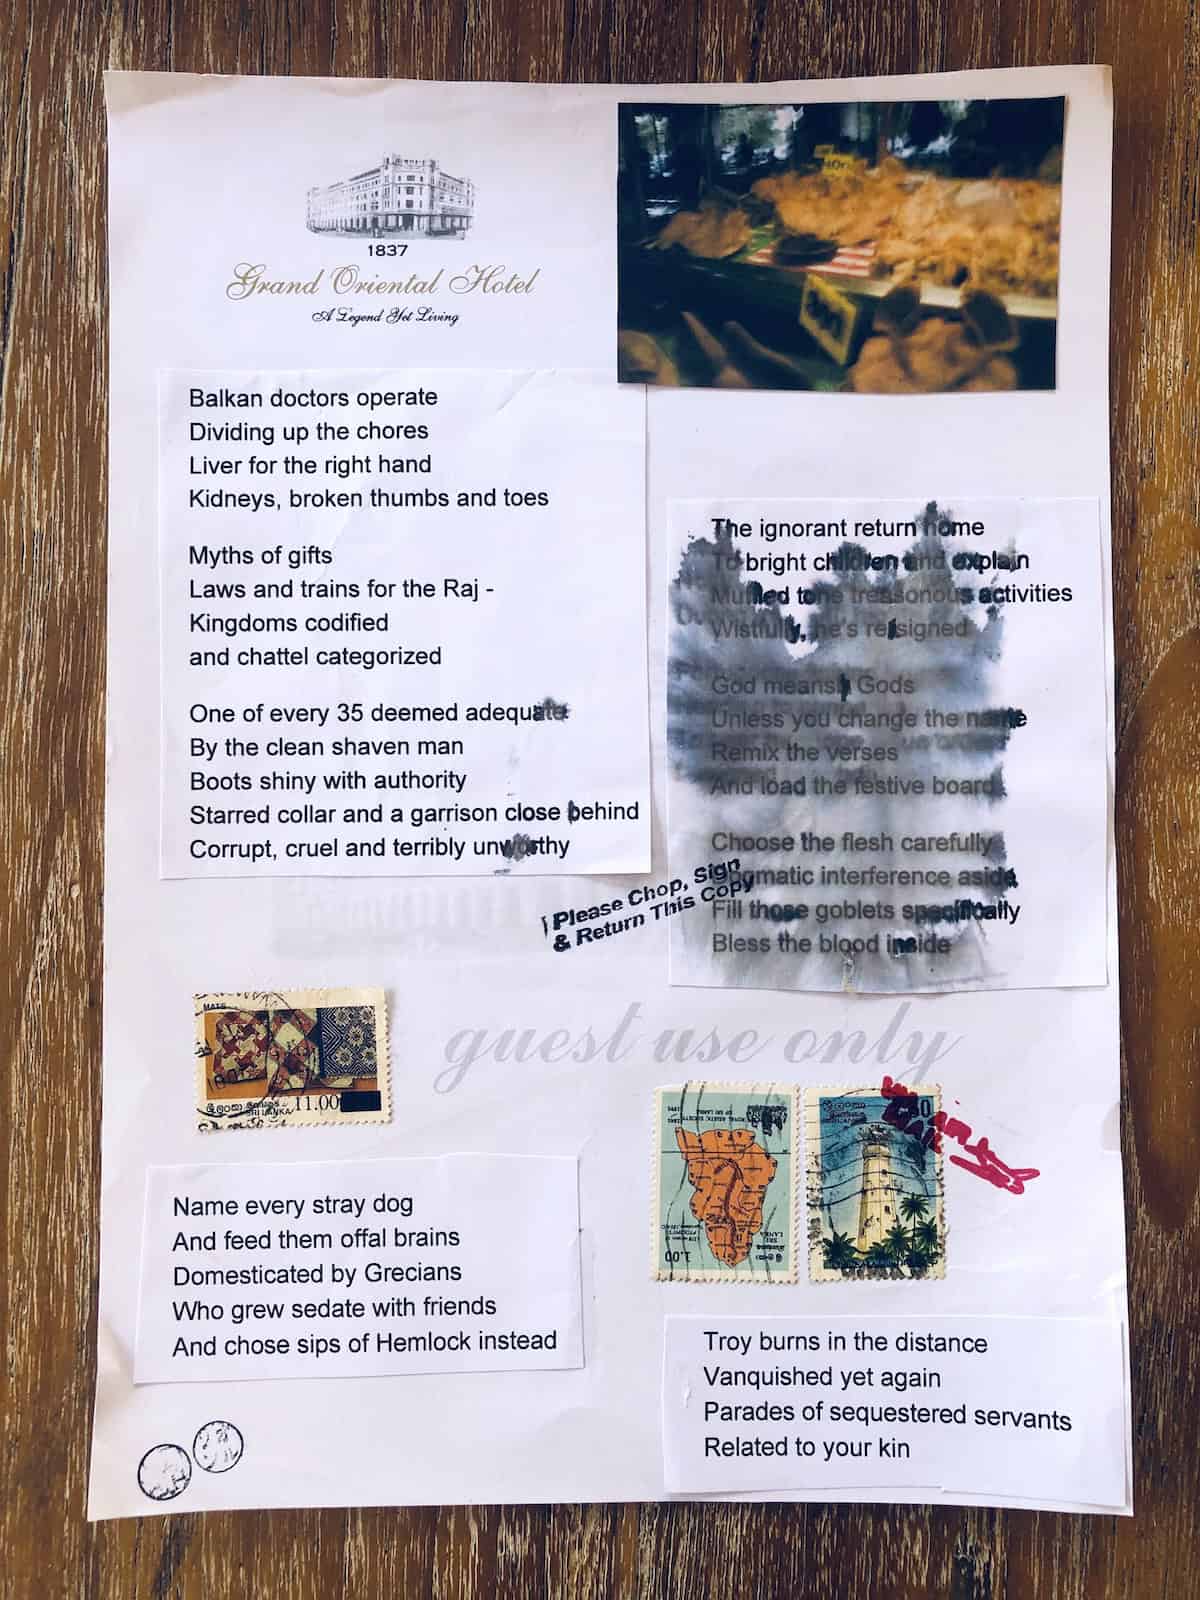 1837
Grand Oriental Hotel
A Legend Yet Living
Balkan doctors operate
Dividing up the chores
Liver for the right hand
Kidneys, broken thumbs and toes
Myths of gifts
Laws and trains for the Raj -
Kingdoms codified
and chattel categorized
One of every 35 deemed adequate
By the clean shaven man
Boots shiny with authority
Starred collar and a garrison close behind
Corrupt, cruel and terribly unworthy
The ignorant return home
To bright children and explain
Muffled tone treasonous activities
Wistfully, he's resigned
God means Gods
Unless you change the name
Remix the verses
And load the festive board
Choose the flesh carefully
Dogmatic interference aside
Fill those goblets specifically
Bless the blood inside
Please Chop, Sign
& Return This Copy
guest use only
MATS
ශ්‍රී ලංකා இலங்கை
SRI LANKA 11.00
ROYAL ASIATIC SOCIETY
OF SRI LANKA
SRI
LANKA
1.00
Name every stray dog
And feed them offal brains
Domesticated by Grecians
Who grew sedate with friends
And chose sips of Hemlock instead
Troy burns in the distance
Vanquished yet again
Parades of sequestered servants
Related to your kin